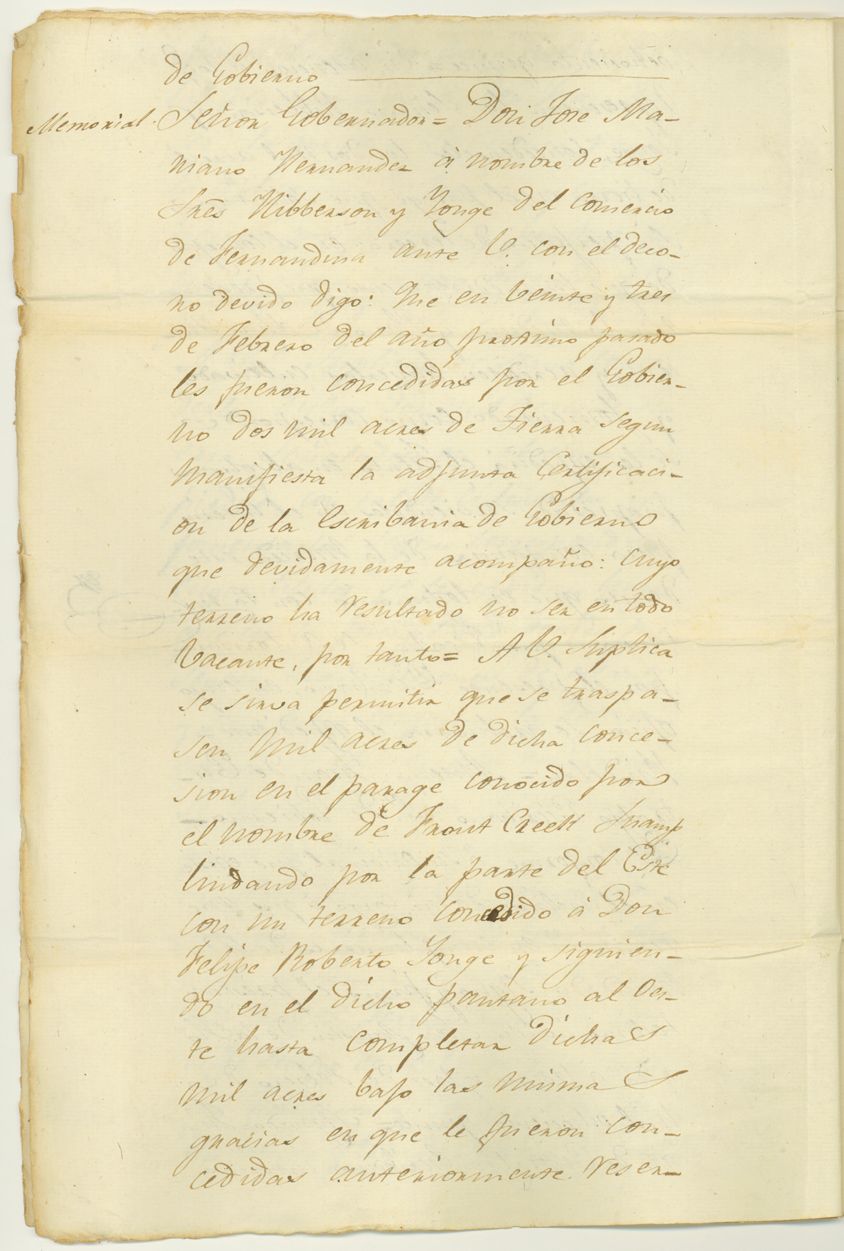 de Gobierno
Memorial. Señor Gobernador= Don Jose Ma-
riano Hernandez à nombre de los
Sres Hibberson y Yonge del Comercio
de Fernandina ante V. con el deco-
ro devido digo: Que en veinte y tres
de Febrero del año proximo pasado
les fueron concedidas por el Gobier-
no dos mil acres de Tierra segun
manifiesta la adjunta Certificaci-
on de la Escribania de Gobierno
que devidamente acompaño: cuyo
terreno ha resultado no ser en todo
vacante, por tanto= A V. Suplica
se sirva permitir que se traspa-
sen mil acres de dicha conce-
sion en el parage conocido por
el nombre de Front Creek Swamp
lindando por la parte del Este
con un terreno concedido à Don
Felipe Roberto Yonge y siguien-
do en el dicho pantano al Oes-
te hasta completar dichas
mil acres bajo las mismas
gracias en que le fueron con-
cedidas anteriormente. reser-